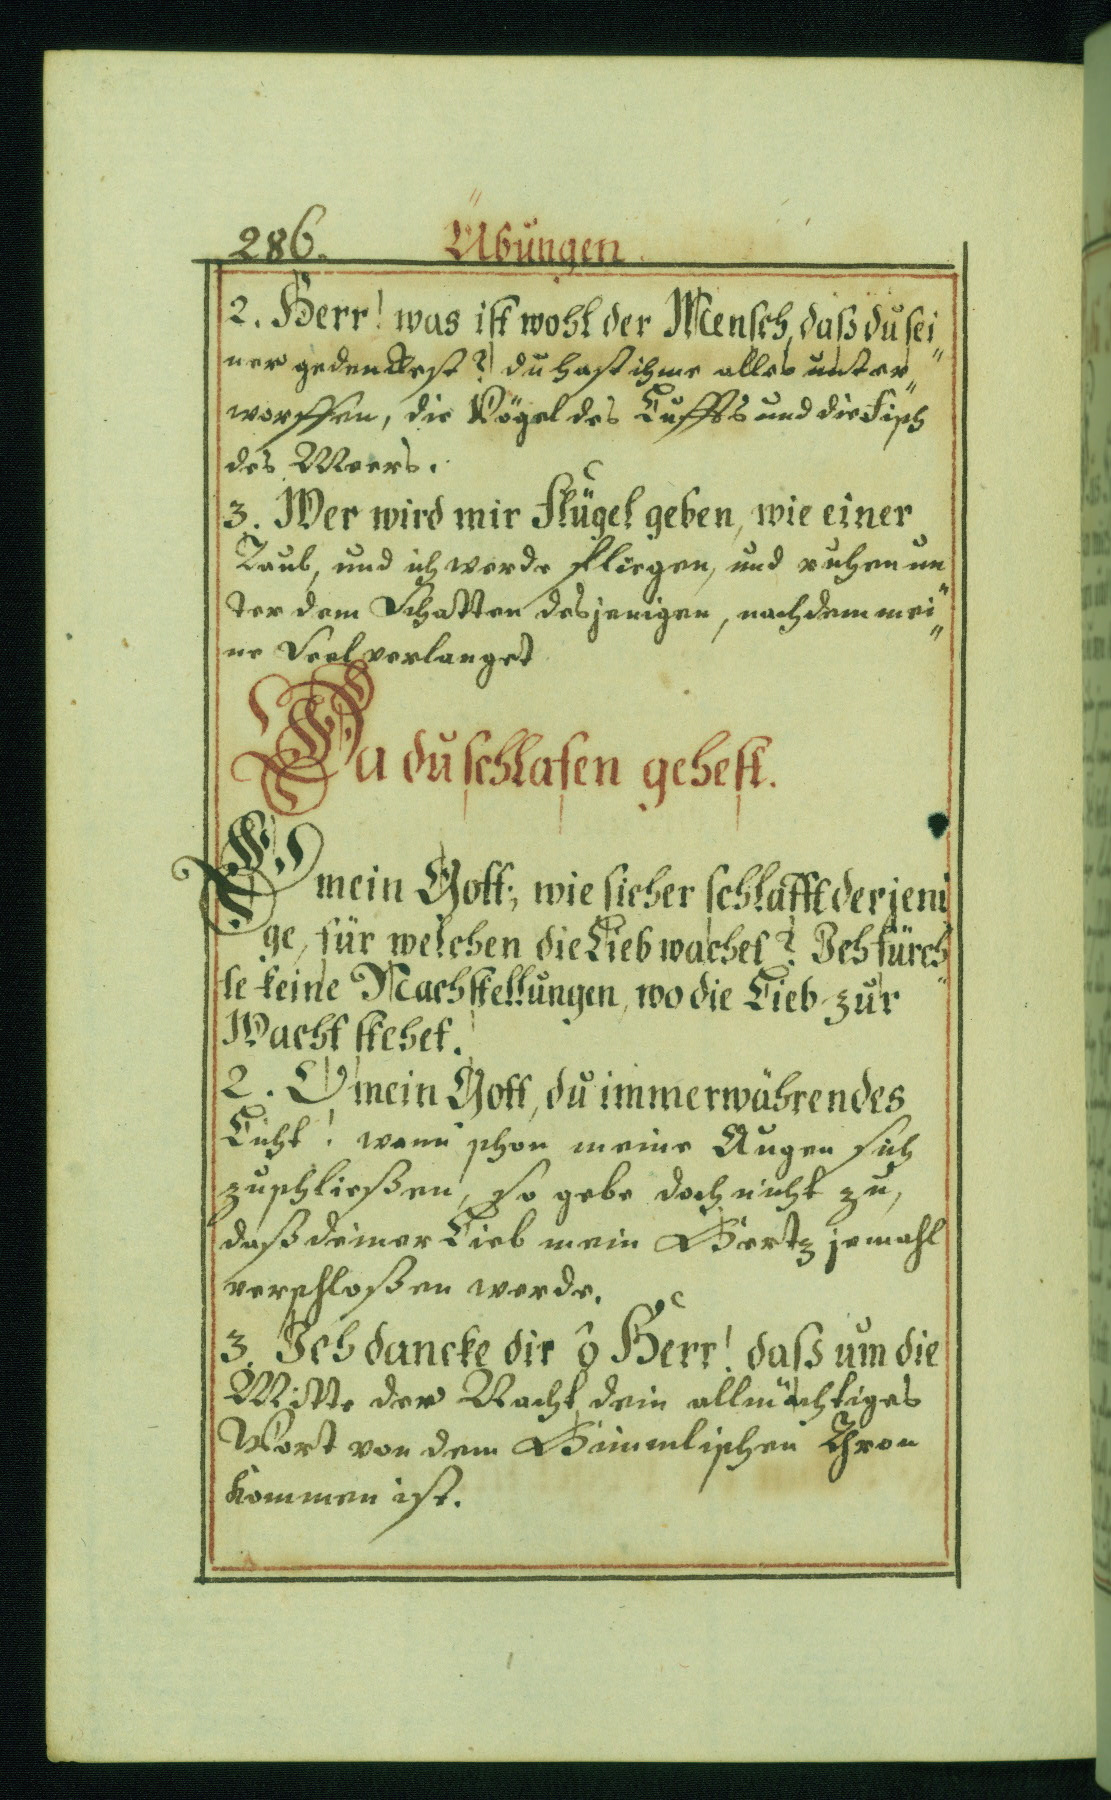 286. Übungen
2. Herr! was ist wohl der Mensch, daß du sei„
ner gedenckest? du hast ihme alles unter„
worffen, die Vögel des Luffts und die Fisch
des Meers.
3. Wer wird mir Flügel geben, wie einer
Taub, und ich werde fliegen, und ruhen un„
ter dem Schatten desjenigen, nach dem mei„
ne Seel verlanget
Da du schlafen gehest.
O mein Gott; wie sicher schläfft derjeni
ge, für welchen die Lieb wachet? Ich fürch„
te keine Nachstellungen, wo die Lieb zur
Wacht stehet.
2. O mein Gott, du immerwährendes
Licht! wann schon meine Augen sich
zuschließen, so gebe doch nicht zu,
daß deiner Lieb mein Hertz jemahl
verschloßen werde.
3. Ich dancke dir ô Herr! daß um die
Mitte der Nacht dein allmächtiges
Wort von dem Himmlischen Thron
kommen ist.